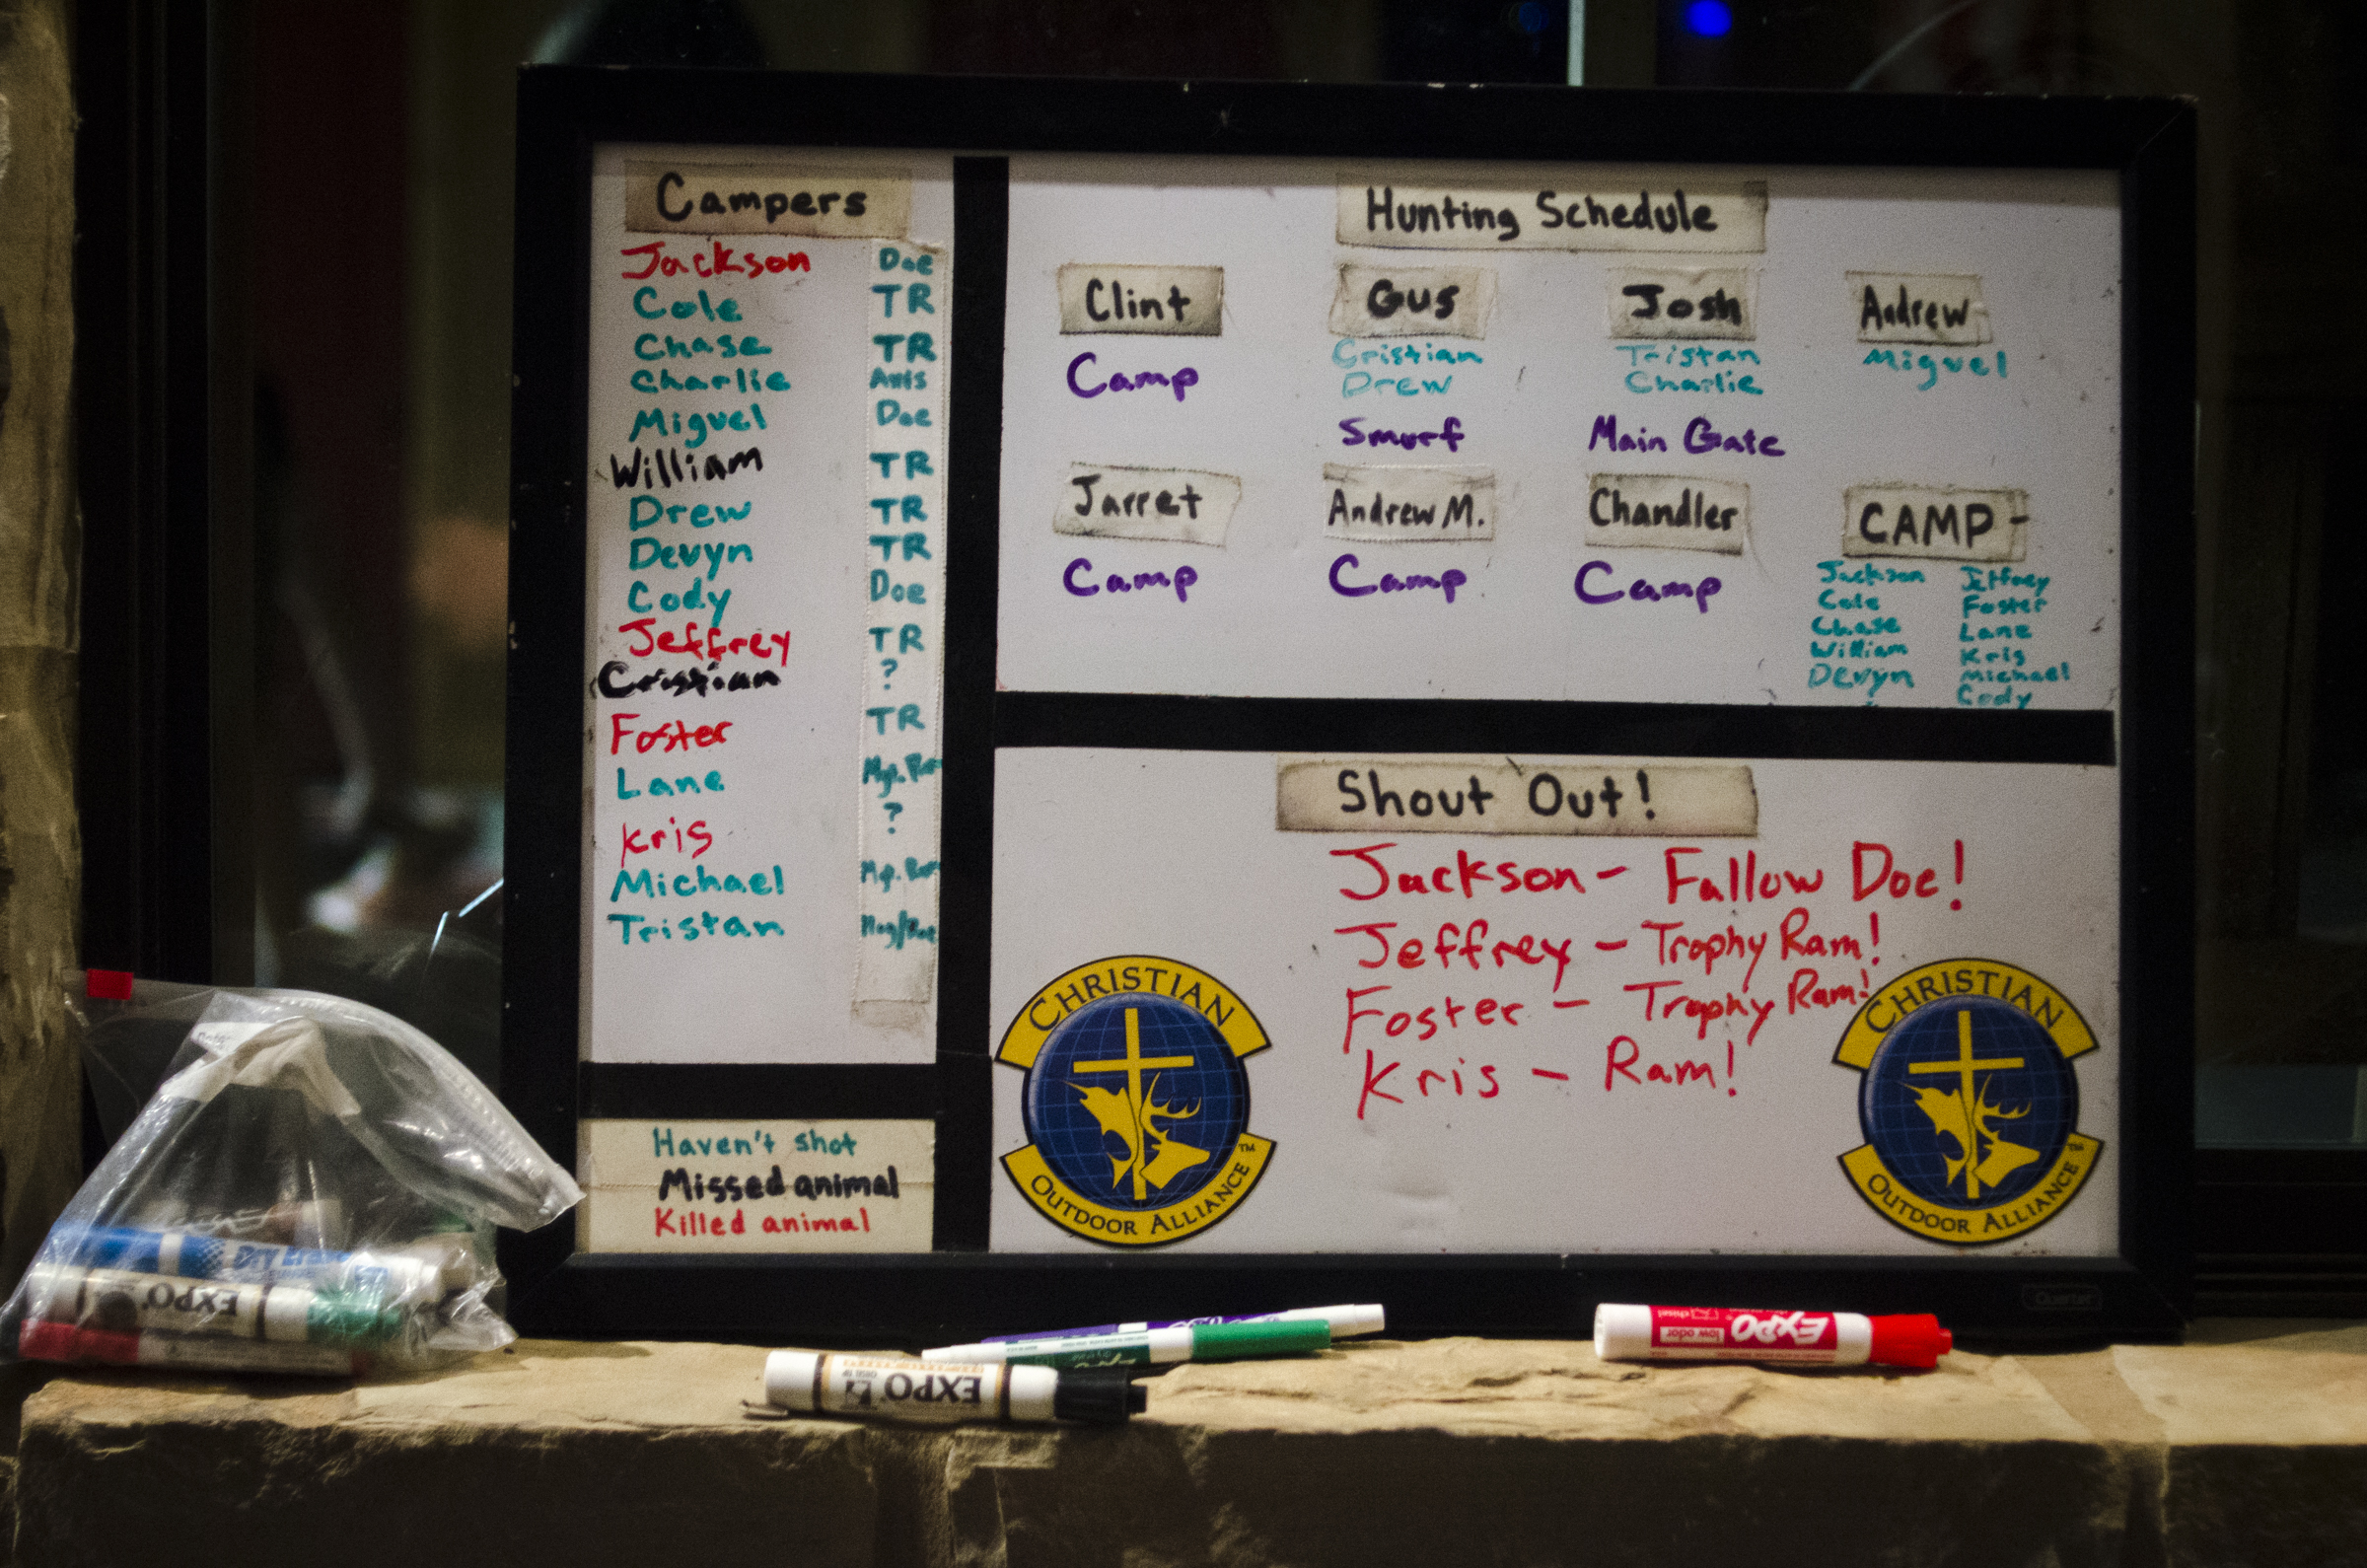 Campers
Jackson Doe
Cole TR
Chase TR
Charlie Axis
Miguel Doe
William TR
Drew TR
Devyn TR
Cody Doe
Jeffrey TR
Cristian ?
Foster TR
Lane
Kris ?
Michael
Tristan
Haven't shot
Missed animal
Killed animal
Hunting Schedule
Clint Gus Josh Andrew
Camp
Cristian Tristan Miguel
Drew Charlie
Smurf Main Gate
Jarret Andrew M. Chandler CAMP-
Camp Camp Camp
Jackson Jeffrey
Cole Foster
Chase Lane
William Kris
Devyn Michael
Cody
Shout Out!
Jackson - Fallow Doe!
Jeffrey - Trophy Ram!
Foster - Trophy Ram!
Kris - Ram!
CHRISTIAN
OUTDOOR ALLIANCE™
CHRISTIAN
OUTDOOR ALLIANCE™
Quartet
EXPO
EXPO
low odor
EXPO